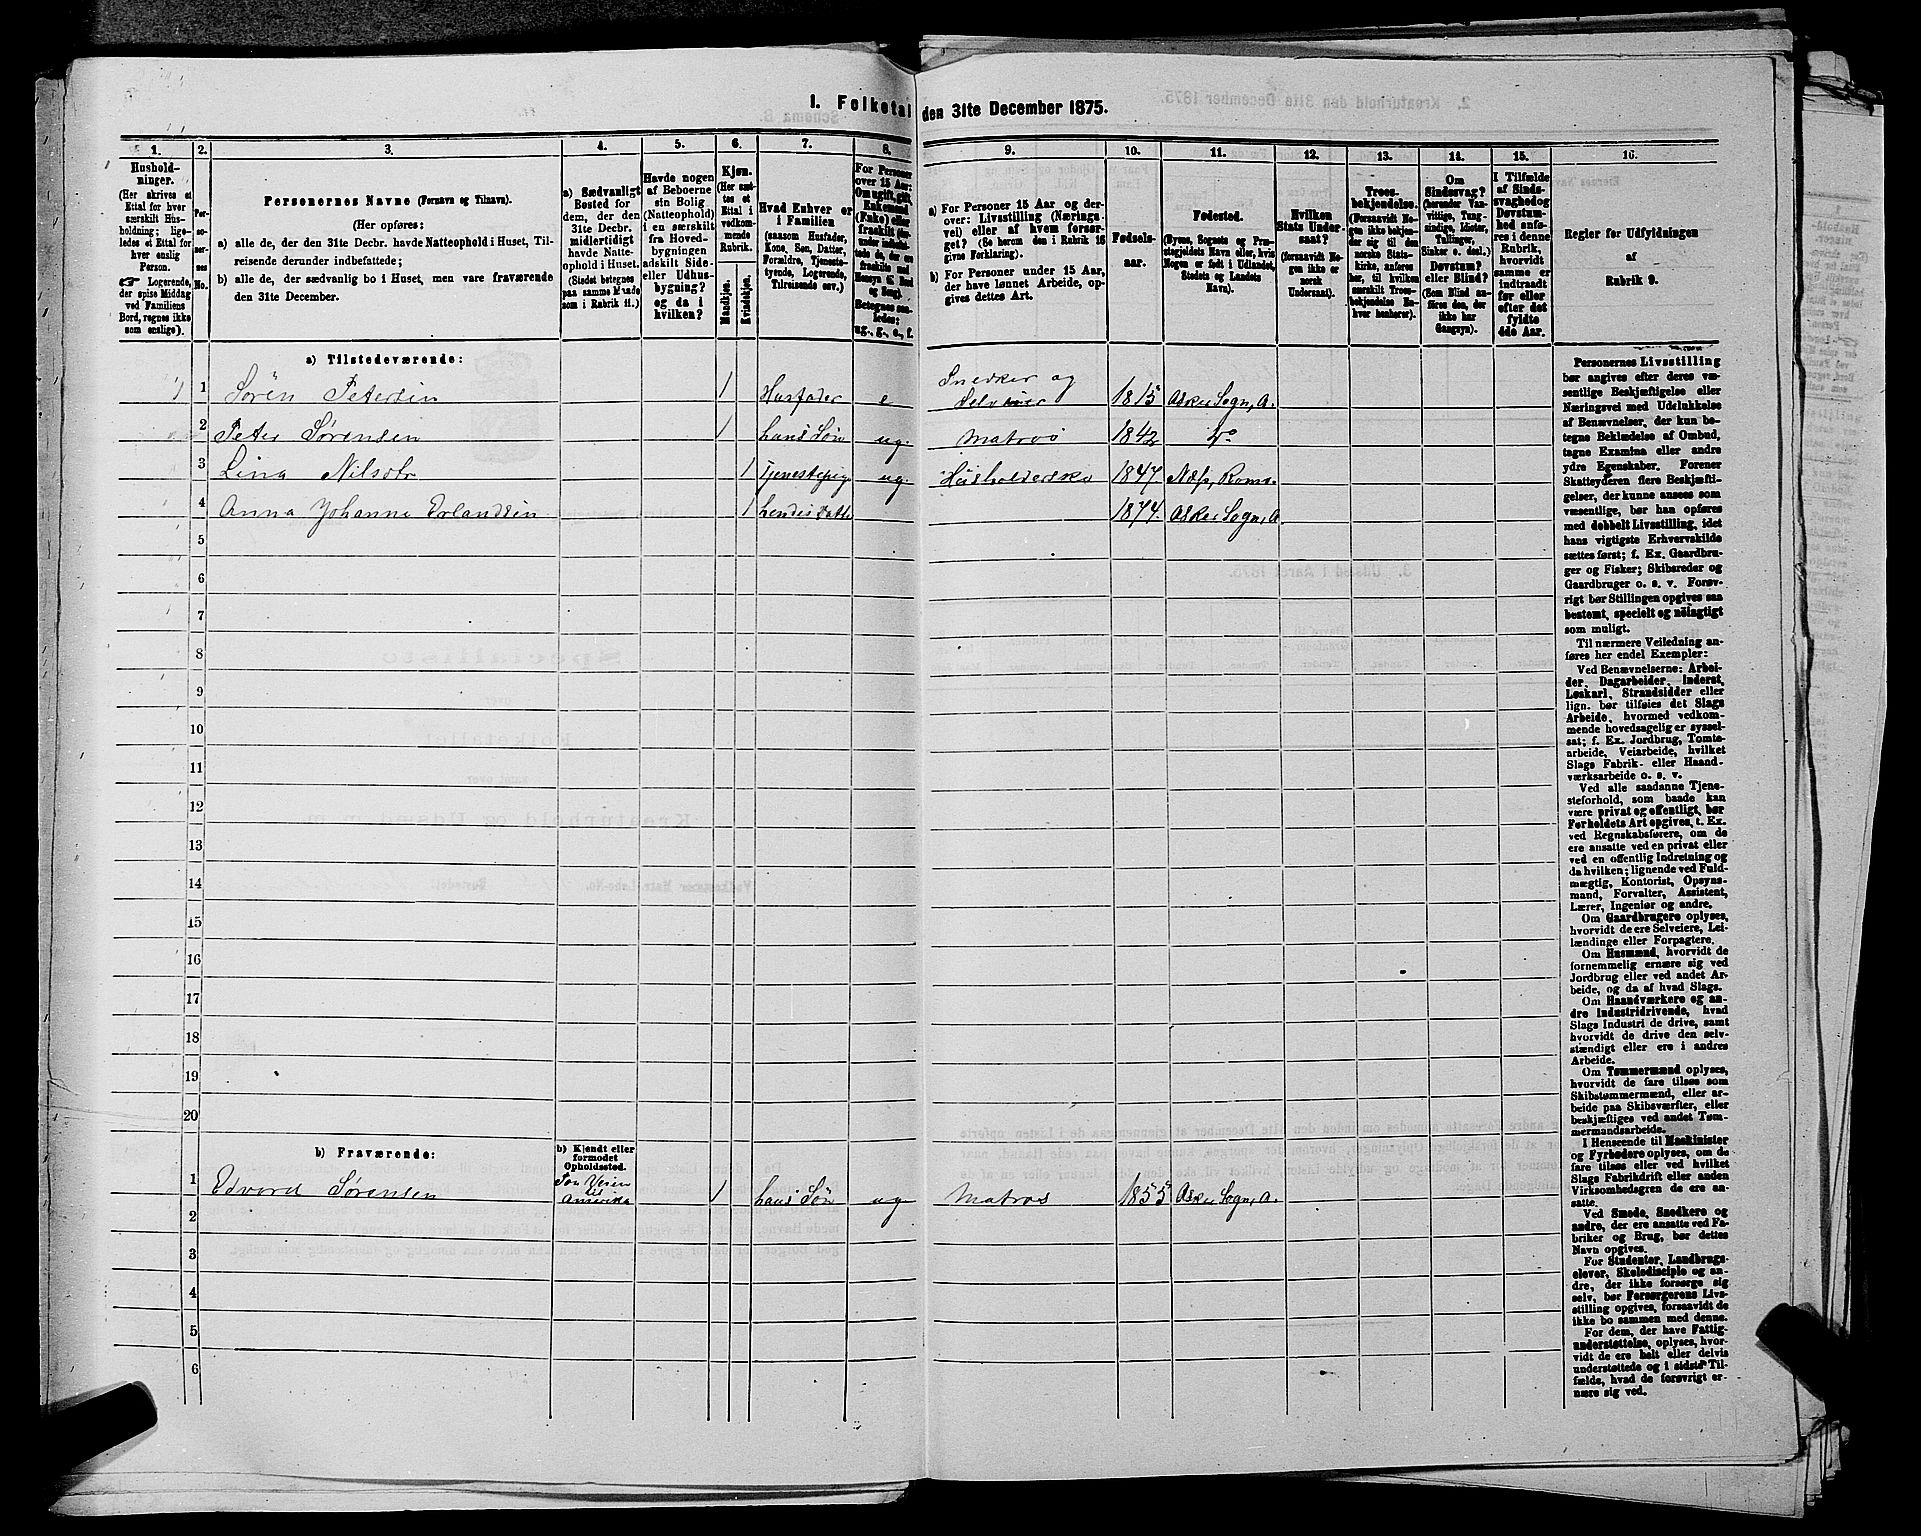 1. Folketal den 31te December 1875.
1. 2. 3. 4. 5. 6. 7. 8. 9. 10. 11. 12. 13. 14. 15. 16.
Hushold-
ninger.
(Her skrives et
Ettal for hver
særskilt Hus-
holdning; lige-
ledes et Ettal for
hver enslig
Person.
Logerende,
der spise Middag
ved Familiens
Bord, regnes ikke
som enslige).
Per-
so-
ner-
nes
No.
Personernes Navne (Fornavn og Tilnavn).
(Her opføres:
a) alle de, der den 31te Decbr. havde Natteophold i Huset, Til-
reisende derunder indbefattede;
b) alle de, der sædvanlig bo i Huset, men vare fraværende
den 31te December.
a) Sædvanligt
Bosted for
dem, der den
31te Decbr.
midlertidigt
havde Natte-
ophold i Huset.
(Stedet betegnes
paa samme Maade
som i Rubrik 11.)
Havde nogen
af Beboerne
sin Bolig
(Natteophold)
i en særskilt
fra Hoved-
bygningen
adskilt Side-
eller Udhus-
bygning?
og da i
hvilken?
Kjøn.
(Her sæt-
tes et
Ettal i
vedkom-
mende
Rubrik.
Mandkjøn.
Kvindekjøn.
Hvad Enhver er
i Familien
(saasom Husfader,
Kone, Søn, Datter,
Forældre, Tjeneste-
tyende, Logerende,
Tilreisende osv.)
For Personer
over 15 Aar:
Om ugift, gift,
Enkemand
(Enke) eller
fraskilt
Betegnes saa-
ledes:
ug., g., e., f.
a) For Personer 15 Aar og der-
over: Livsstilling (Nærings-
vei) eller af hvem forsør-
get? (Se herom den i Rubrik 16
givne Forklaring).
b) For Personer under 15 Aar,
der have lønnet Arbeide, op-
gives dettes Art.
Fødsels-
aar.
Fødested.
(Byens, Sognets og Præ-
stegjeldets Navn eller, hvis
Nogen er født i Udlandet,
Stedets og Landets
Navn).
Hvilken
Stats Under-
saat?
(forsaavidt No-
gen ikke er
norsk
Undersaat).
Troes-
bekjendelse.
(Forsaavidt No-
gen ikke bekjen-
der sig til den
norske Stats-
kirke, anføres
her, til hvilken
særskilt Troes-
bekjendelse En-
hver henhører).
Om
Sindssvag?
(herunder Van-
vittige, Tung-
sindige, Idioter,
Tullinger,
Sinker o. desl.)
Døvstum?
eller Blind?
(Som Blind an-
føres den, der
ikke har
Gangsyn).
I Tilfælde
af Sinds-
svaghed og
Døvstum-
hed anfø-
res i denne
Rubrik,
hvorvidt
samme er
indtraadt
før eller
efter det
fyldte
4de Aar.
Regler for Udfyldningen
af
Rubrik 9.
a) Tilstedeværende:
1 1 Søren Petersen 1 Husfader e Snedker og Selveier 1815 Asker Sogn, A.
2 Peter Sørensen 1 hans Søn ug. Matros 1842 Do
3 Lina Nilsdtr 1 Tjenestepige ug. Husholderske 1847. Næs, Roms.
4 Anna Johanne Erlandsen 1 hendes Datter 1874. Asker Sogn, A.
5
6
7
8
9
10
11
12
13
14
15
16
17
18
19
20
b) Fraværende:
b) Kjendt eller
formodet
Opholdssted.
1 Edvard Sørensen Paa Veien til Amerika 1 hans Søn ug Matros 1855 Asker Sogn, A.
2
3
4
5
6
Personernes Livsstilling
bør angives efter deres væ-
sentlige Beskjæftigelse eller
Næringsvei med Udelukkelse
af Benævnelser, der kun be-
tegne Beklædelse af Ombud,
tagne Examina eller andre
ydre Egenskaber. Forener
Skatteyderen flere Beskjæfti-
gelser, der kunne ansees som
væsentlige, bør han opføres
med dobbelt Livsstilling, idet
hans vigtigste Erhvervskilde
sættes først; f. Ex. Gaardbru-
ger og Fisker; Skibsreder og
Gaardbruger o. s. v. Forøv-
rigt bør Stillingen opgives saa
bestemt, specielt og nøiagtigt
som muligt.
Til nærmere Veiledning an-
føres her endel Exempler:
Ved Benævnelserne: Arbei-
der, Dagarbeider, Inderst,
Løskarl, Strandsidder eller
lign. bør tilføies det Slags
Arbeide, hvormed vedkom-
mende hovedsagelig er syssel-
sat; f. Ex. Jordbrug, Tomte-
arbeide, Veiarbeide, hvilket
Slags Fabrik- eller Haand-
værksarbeide o. s. v.
Ved alle saadanne Tjene-
steforhold, som baade kan
være privat og offentligt, bør
Forholdets Art opgives, t. Ex.
ved Regnskabsførere, om de
ere ansatte ved en privat eller
ved en offentlig Indretning og
da hvilken; lignende ved Fuld-
mægtig, Kontorist, Opsyns-
mand, Forvalter, Assistent,
Lærer, Ingeniør og andre.
Om Gaardbrugere oplyses,
hvorvidt de ere Selveiere, Lei-
lændinge eller Forpagtere.
Om Husmænd, hvorvidt de
fornemmelig ernære sig ved
Jordbrug eller ved andet Ar-
beide, og da af hvad Slags.
Om Haandværkere og an-
dre Industridrivende, hvad
Slags Industri de drive, samt
hvorvidt de drive den selv-
stændigt eller ere i andres
Arbeide.
Om Tømmermænd oplyses,
hvorvidt de fare tilsøs som
Skibstømmermænd, eller ar-
beide paa Skibsværfter, eller
beskjæftiges ved andet Tøm-
mermandsarbeide.
I Henseende til Maskinister
og Fyrbødere oplyses, om de
fare tilsøs eller ved hvilket
Slags Fabrikdrift eller anden
Virksomhedsgren de ere an-
satte.
Ved Smede, Snedkere og
andre, der ere ansatte ved Fa-
briker og Brug, bør dettes
Navn opgives.
For Studenter, Landbrugs-
elever, Skoledisciple og an-
dre, der ikke forsørge sig
selv, bør Forsørgerens Livs-
stilling opgives, forsaavidt de
ikke bo sammen med denne.
For dem, der have Fattig-
understøttelse, oplyses, hvor-
vidt de ere helt eller delvis
understøttede og i sidste Til-
fælde, hvad de forøvrigt er-
nære sig ved.